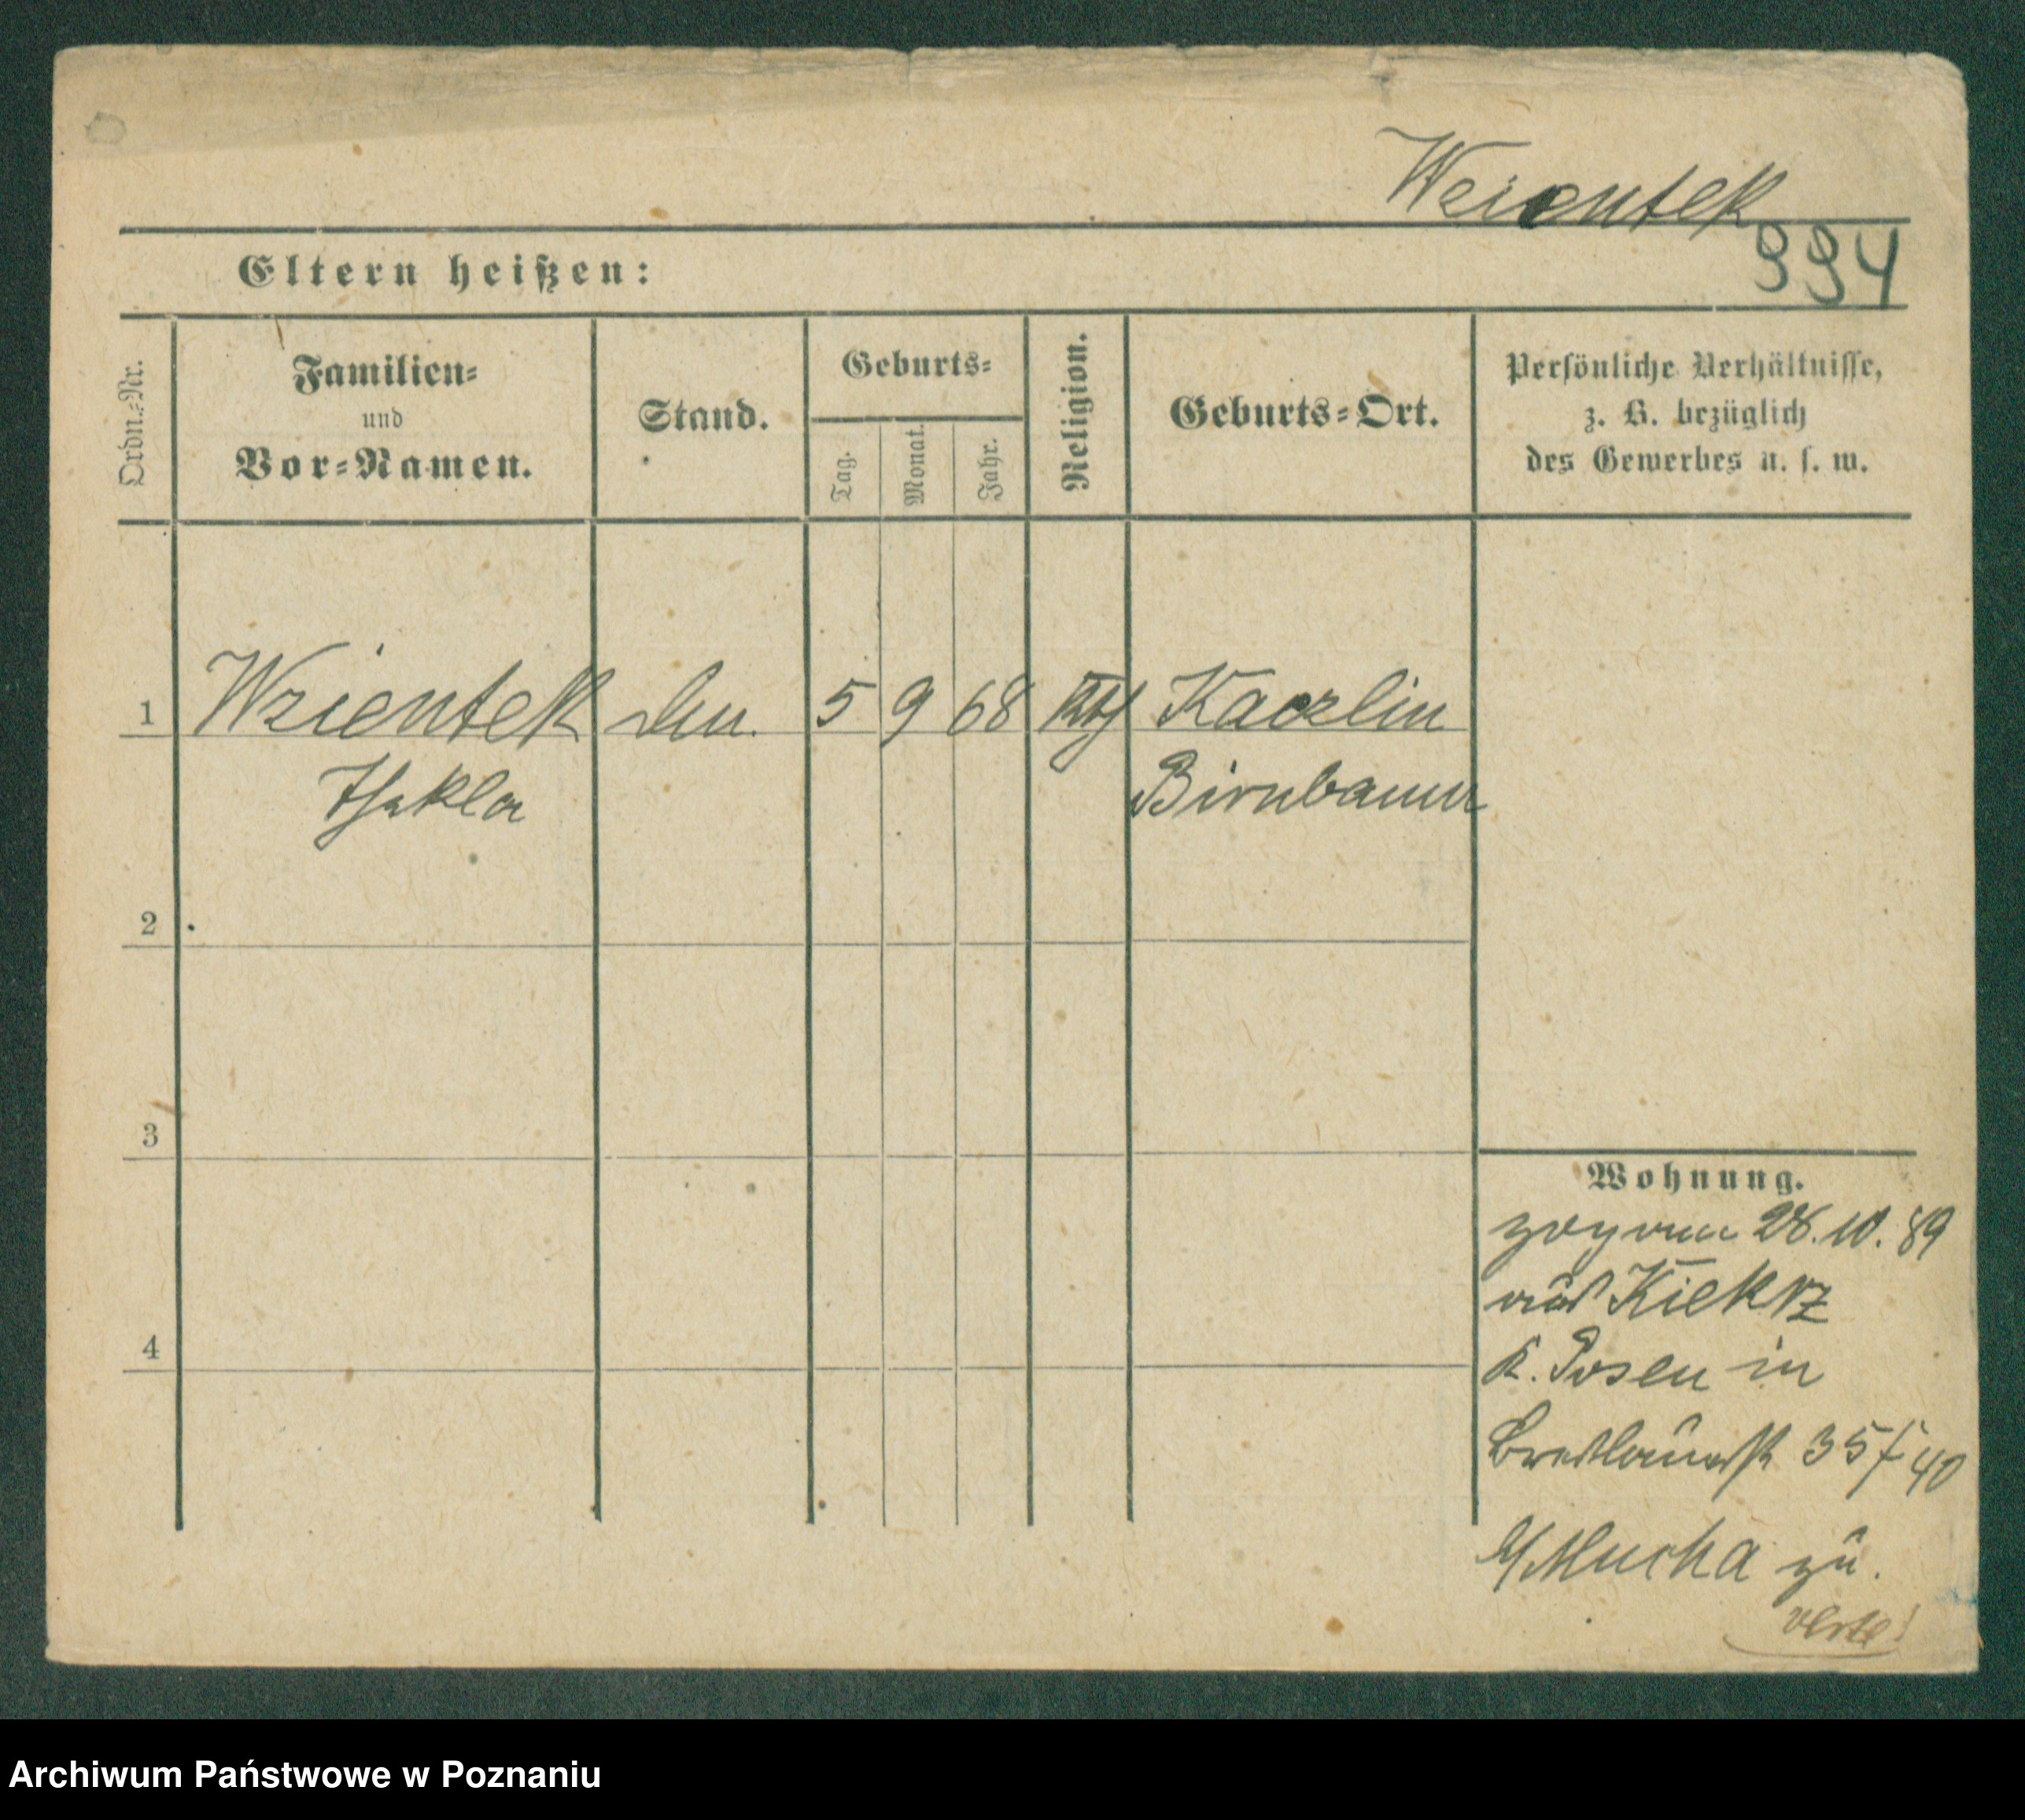 Wzientek
994
Eltern heißen:
Ordn.-Nr.
Familien-
und
Vor-Namen.
Stand.
Geburts-
Tag.
Monat.
Jahr.
Religion.
Geburts-Ort.
Persönliche Verhältnisse,
z. B. bezüglich
des Gewerbes u. s. w.
1 Wzientek 5 9 68 kth Kaczlin
Thekla Birnbaum
2
3
4
Wohnung.
zog von 28. 10. 89
aus Kiekrz
K. Posen in
Breslauerstr 35/40
b/Mucha zu.
verte!
Archiwum Państwowe w Poznaniu